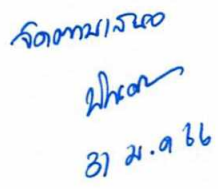 จัดตามเสนอ
31 ม.ค 66